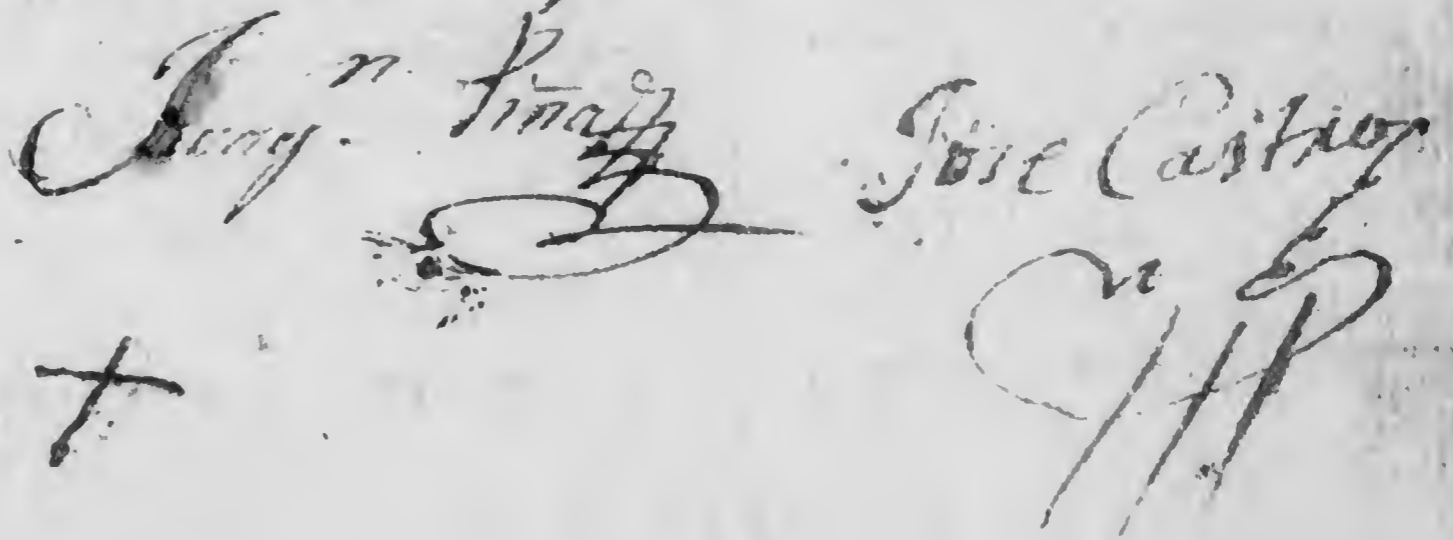 Joaq.n Piña José Castro